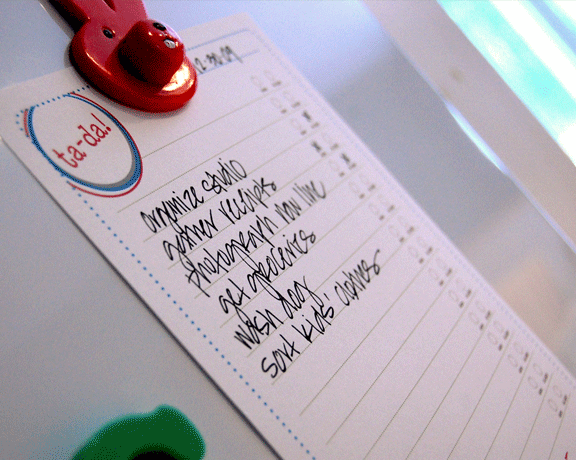 12.30.09
ta-da!
organize studio
gather receipts
photograph new line
get groceries
wash dog
sort kids' clothes